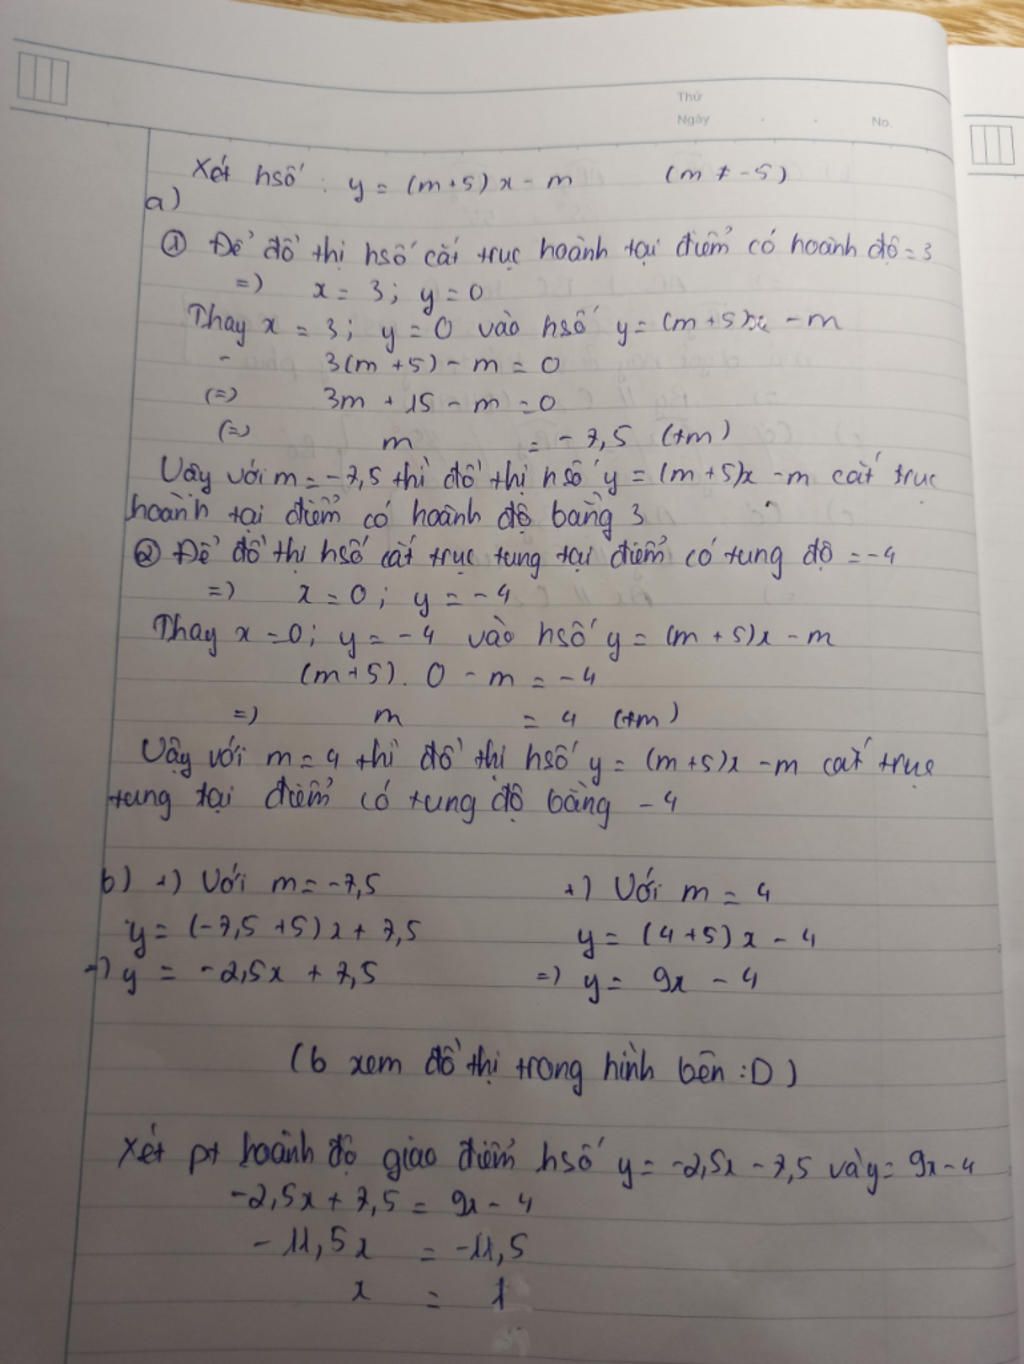 Thứ
Ngày . . No.
Xét hsố : y = (m+5)x - m (m ≠ -5)
a)
① Để đồ thị hsố cắt trục hoành tại điểm có hoành độ = 3
=) x = 3; y = 0
Thay x = 3; y = 0 vào hsố y = (m+5)x - m
- 3(m+5) - m = 0
(=) 3m + 15 - m = 0
(=) m = -7,5 (tm)
Vậy với m = -7,5 thì đồ thị hsố y = (m+5)x - m cắt trục
hoành tại điểm có hoành độ bằng 3
② Để đồ thị hsố cắt trục tung tại điểm có tung độ = -4
=) x = 0; y = -4
Thay x = 0; y = -4 vào hsố y = (m+5)x - m
(m+5). 0 - m = -4
=) m = 4 (tm)
Vậy với m = 4 thì đồ thị hsố y = (m+5)x - m cắt trục
tung tại điểm có tung độ bằng -4
b) +) Với m = -7,5 +) Với m = 4
y = (-7,5 +5)x + 7,5 y = (4+5)x - 4
=) y = -2,5x + 7,5 =) y = 9x - 4
(b xem đồ thị trong hình bên :D)
Xét pt hoành độ giao điểm hsố y = -2,5x - 7,5 và y = 9x - 4
-2,5x + 7,5 = 9x - 4
-11,5x = -11,5
x = 1